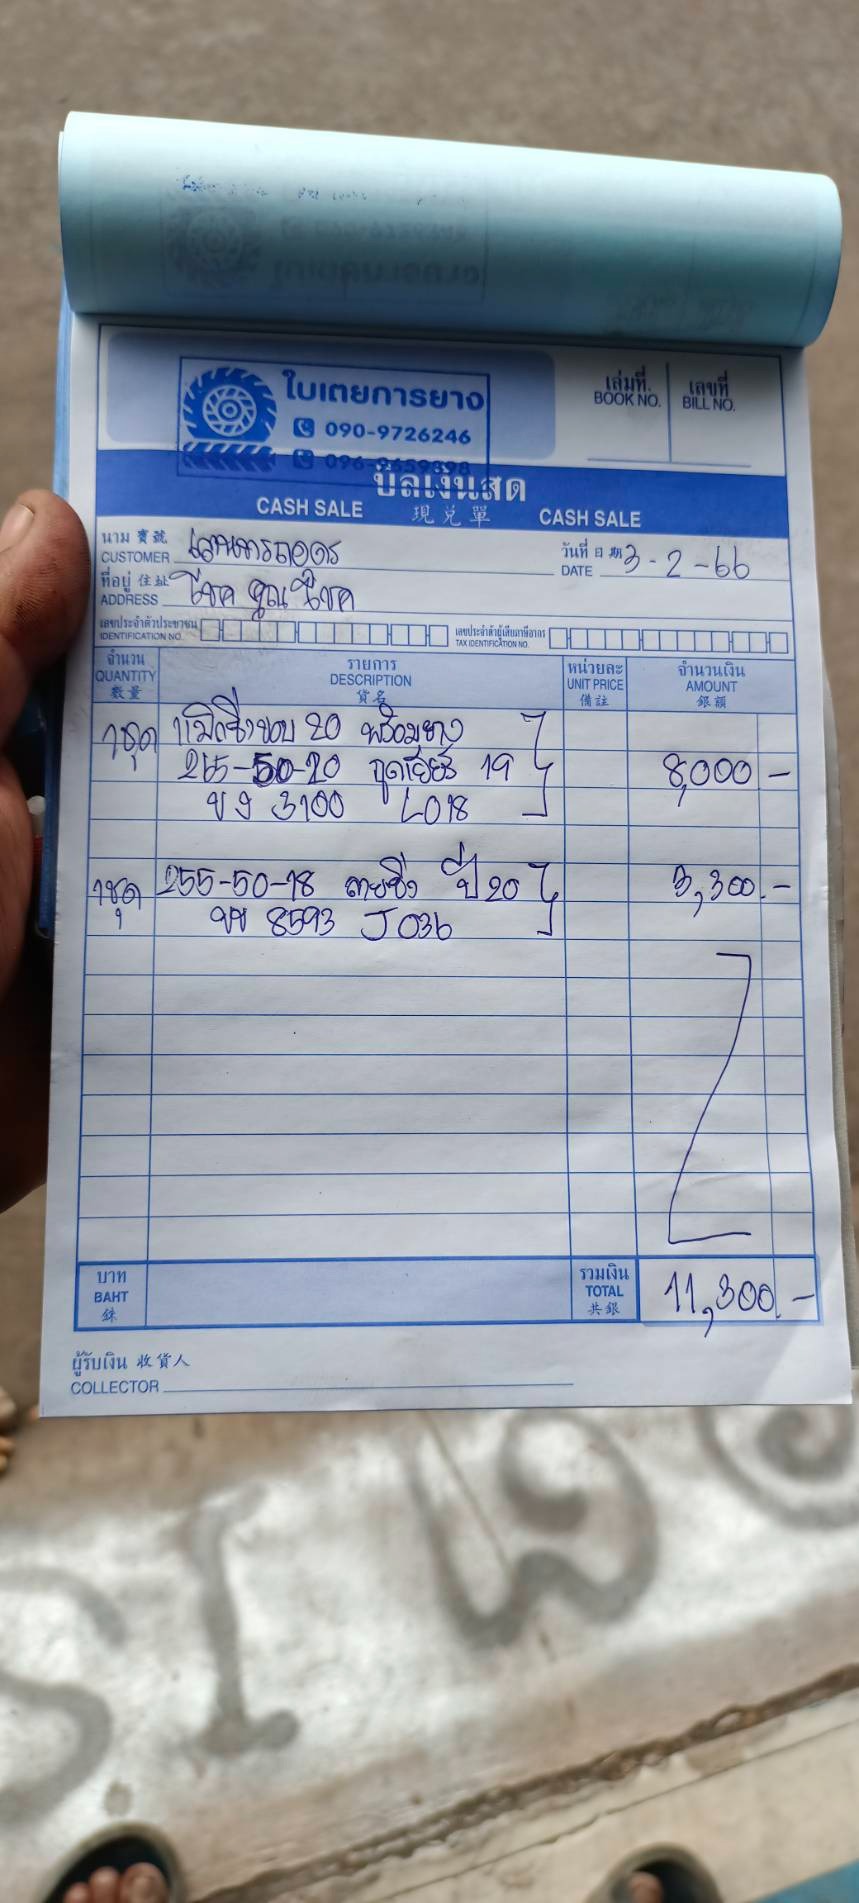 ใบเตยการยาง
090-9726246
096-9659898
เล่มที่. เลขที่
BOOK NO. BILL NO.
บิลเงินสด
CASH SALE 現兌單 CASH SALE
นาม 寶號
CUSTOMER
วันที่ 日期 3-2-66
DATE
ที่อยู่ 住址
ADDRESS โชค คุณโชค
เลขประจำตัวประชาชน
IDENTIFICATION NO.
เลขประจำตัวผู้เสียภาษีอากร
TAX IDENTIFICATION NO.
จำนวน รายการ หน่วยละ จำนวนเงิน
QUANTITY DESCRIPTION UNIT PRICE AMOUNT
數量 貨名 備註 銀額
1ชุด แม็กซิ่งขอบ 20 พร้อมยาง
265-50-20 กู๊ดเยียร์ 19 8,000.-
ขง 3100 L018
1ชุด 255-50-18 ลายซิ่ง ปี 20 3,300.-
ขข 8593 J036
บาท รวมเงิน
BAHT TOTAL 11,300.-
銖 共銀
ผู้รับเงิน 收貨人
COLLECTOR